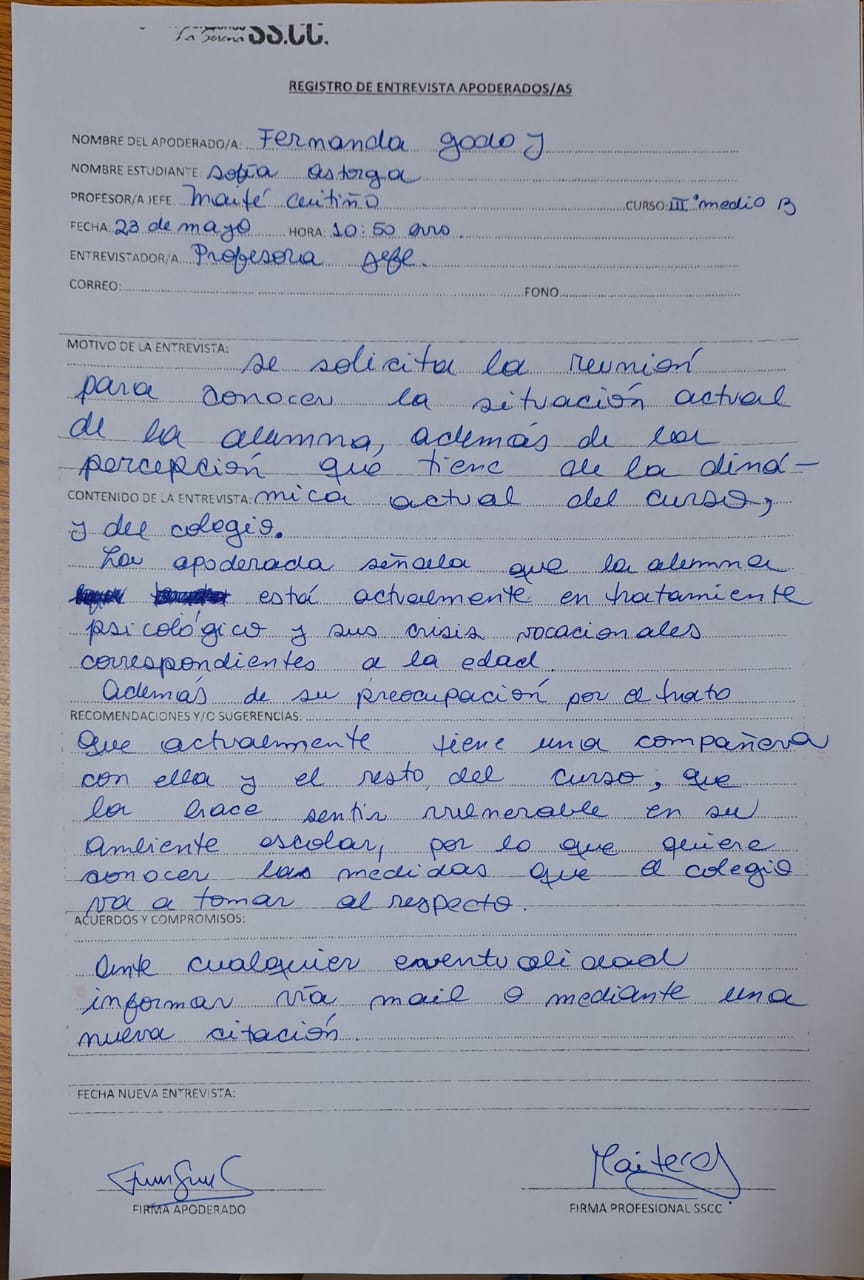 La Serena SS.CC.
REGISTRO DE ENTREVISTA APODERADOS/AS
NOMBRE DEL APODERADO/A: Fernanda Godoy
NOMBRE ESTUDIANTE: Sofía Astorga
PROFESOR/A JEFE: Maité CURSO: III° medio B
FECHA: 23 de mayo HORA: 10:50
ENTREVISTADOR/A: Profesora Jefe.
CORREO: FONO
MOTIVO DE LA ENTREVISTA: se solicita la reunión
para conocer la situación actual
de la alumna, además de la
percepción que tiene de la diná-
CONTENIDO DE LA ENTREVISTA: mica actual del curso,
y del colegio.
La apoderada señala que la alumna
está actualmente en tratamiento
psicológico y sus crisis vocacionales
correspondientes a la edad.
Además de su preocupación por el trato
RECOMENDACIONES Y/O SUGERENCIAS:
que actualmente tiene una compañera
con ella y el resto del curso, que
la hace sentir vulnerable en su
ambiente escolar, por lo que quiere
conocer las medidas que el colegio
va a tomar al respecto.
ACUERDOS Y COMPROMISOS:
Ante cualquier eventualidad
informar vía mail o mediante una
nueva citación
FECHA NUEVA ENTREVISTA:
FIRMA APODERADO FIRMA PROFESIONAL SSCC